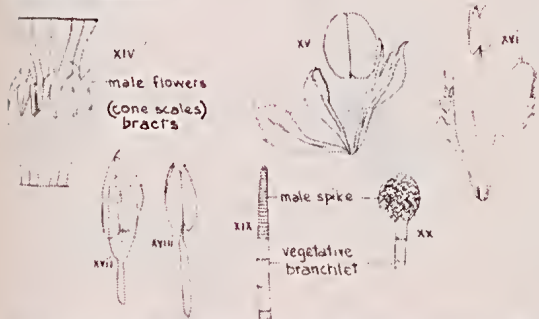 XIV
male flowers
(cone scales)
bracts
XV
XVI
XVII
XVIII
XIX
male spike
vegetative
branchlet
XX